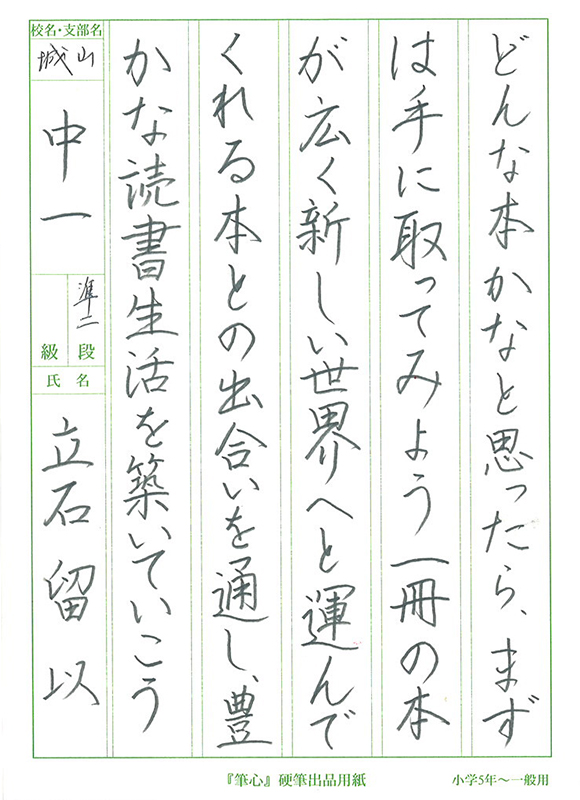 どんな本かなと思ったら、まず
は手に取ってみよう一冊の本
が広く新しい世界へと運んで
くれる本との出合いを通し、豊
かな読書生活を築いていこう
校名・支部名
城山
中一
準二
級 段
氏名
立石留以
『筆心』硬筆出品用紙
小学5年〜一般用